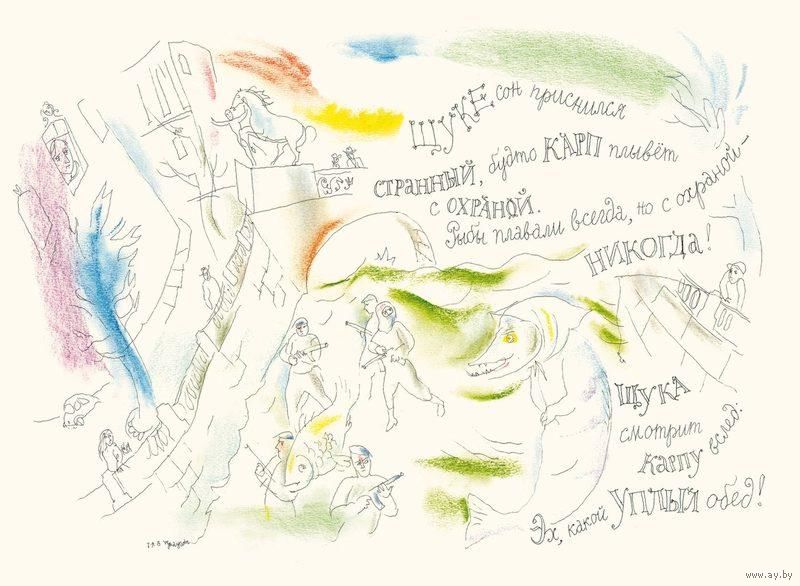 ЩУКЕ сон приснился
СТРАННЫЙ, будто КАРП плывёт
с ОХРАНОЙ.
Рыбы плавали всегда, но с охраной -
НИКОГДА!
ЩУКА
смотрит
КАРПУ вслед:
Эх, какой УПЛЫЛ обед!
www.ay.by